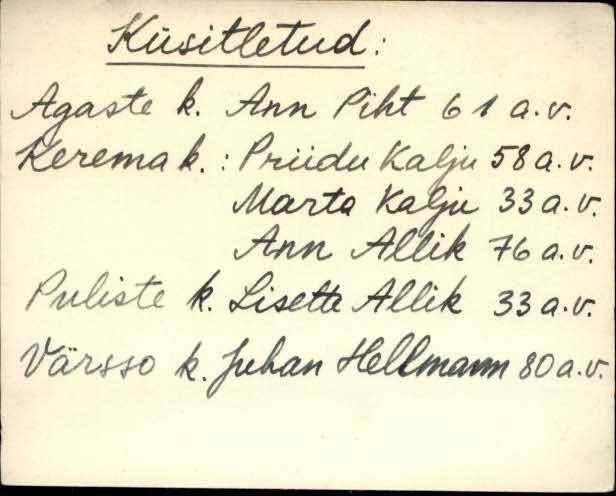 Küsitletud:
Agaste k. Ann Piht 61 a.v.
Kerema k.: Priidu Kalju 58 a.v.
Marta Kalju 33 a.v.
Ann Allik 76 a.v.
Puliste k. Lisette Allik 33 a.v.
Värsso k. Juhan Hellmann 80 a.v.